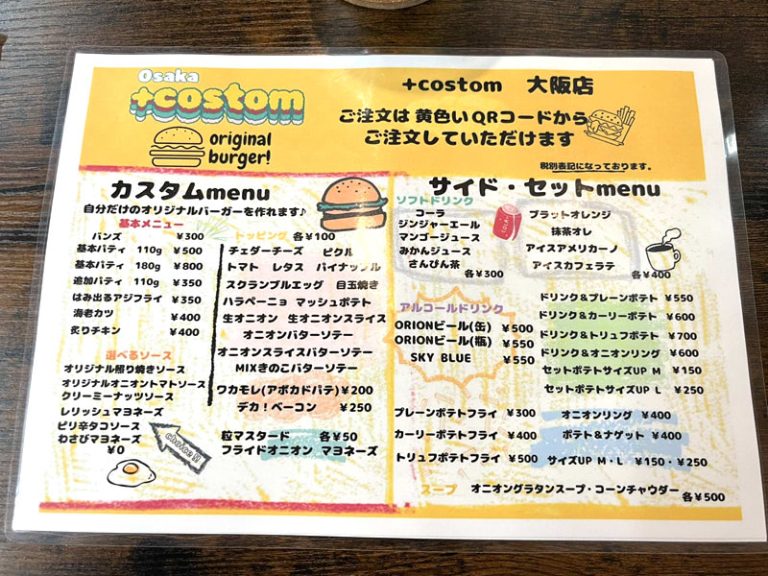 Osaka
+costom
original
burger!
+costom 大阪店
ご注文は 黄色い QRコードから
ご注文していただけます
税別表記になっております。
カスタムmenu
自分だけのオリジナルバーガーを作れます♪
基本メニュー
バンズ ¥300
基本パティ 110g ¥500
基本パティ 180g ¥800
追加パティ 110g ¥350
はみ出るアジフライ ¥350
海老カツ ¥400
炙りチキン ¥400
選べるソース
オリジナル照り焼きソース
オリジナルオニオントマトソース
クリーミーナッツソース
レリッシュマヨネーズ
ピリ辛タコソース
わさびマヨネーズ
¥0
choice!!
トッピング 各¥100
チェダーチーズ ピクル
トマト レタス パイナップル
スクランブルエッグ 目玉焼き
ハラペーニョ マッシュポテト
生オニオン 生オニオンスライス
オニオンバターソテー
オニオンスライスバターソテー
MIXきのこバターソテー
ワカモレ(アボカドパテ) ¥200
デカ!ベーコン ¥250
粒マスタード 各¥50
フライドオニオン マヨネーズ
サイド・セットmenu
ソフトドリンク
コーラ
ジンジャーエール
マンゴージュース
みかんジュース
さんぴん茶
各¥300
ブラットオレンジ
抹茶オレ
アイスアメリカーノ
アイスカフェラテ
各¥400
アルコールドリンク
ORIONビール(缶) ¥500
ORIONビール(瓶) ¥550
SKY BLUE ¥550
ドリンク&プレーンポテト ¥550
ドリンク&カーリーポテト ¥600
ドリンク&トリュフポテト ¥700
ドリンク&オニオンリング ¥600
セットポテトサイズUP M ¥150
セットポテトサイズUP L ¥250
プレーンポテトフライ ¥300
カーリーポテトフライ ¥400
トリュフポテトフライ ¥500
オニオンリング ¥400
ポテト&ナゲット ¥400
サイズUP M・L ¥150・¥250
スープ オニオングラタンスープ・コーンチャウダー 各¥500